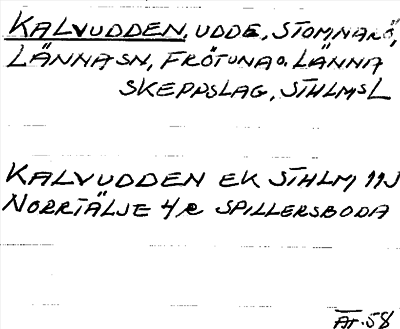 KALVUDDEN, UDDE, STOMNARÖ,
LÄNNA SN, FRÖTUNA O. LÄNNA
SKEPPSLAG, STHLMS L
KALVUDDEN EK STHLM 11J
NORRTÄLJE 4 R SPILLERSBODA
AT. 58